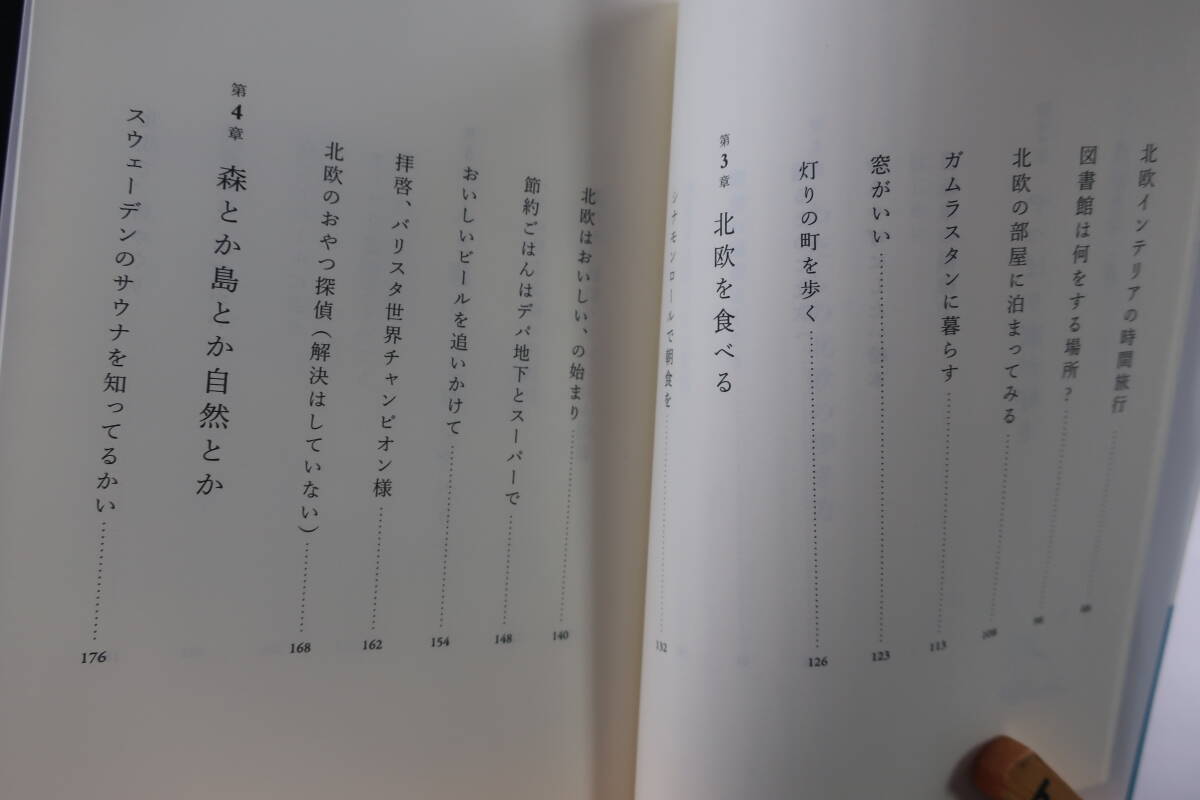 北欧インテリアの時間旅行
図書館は何をする場所?
北欧の部屋に泊まってみる
ガムラスタンに暮らす 113
窓がいい 123
灯りの町を歩く 126
第3章 北欧を食べる
シナモンロールで朝食を 132
北欧はおいしい、の始まり 140
節約ごはんはデパ地下とスーパーで 148
おいしいビールを追いかけて 154
拝啓、バリスタ世界チャンピオン様 162
北欧のおやつ探偵(解決はしていない) 168
第4章 森とか島とか自然とか
スウェーデンのサウナを知ってるかい 176